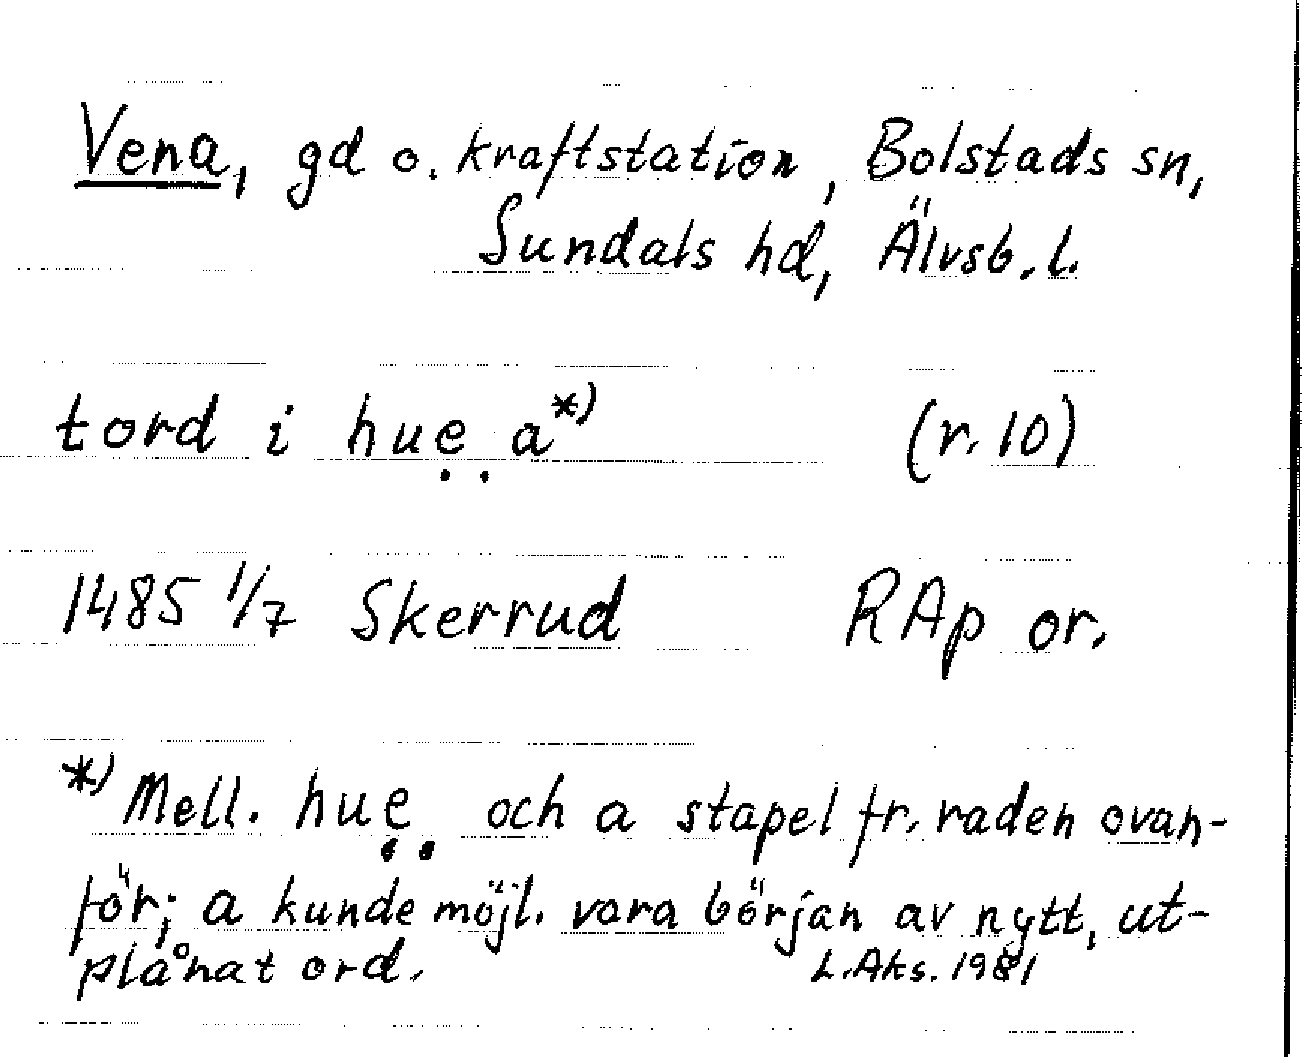 Vena, gd o. kraftstation, Bolstads sn,
Sundals hd, Älvsb. l.
tord i huẹ. a*) (r. 10)
1485 1/7 Skerrud RAp or.
*) Mell. huẹ. och a stapel fr. raden ovan-
för; a kunde möjl. vara början av nytt, ut-
plånat ord. L.Aks. 1981